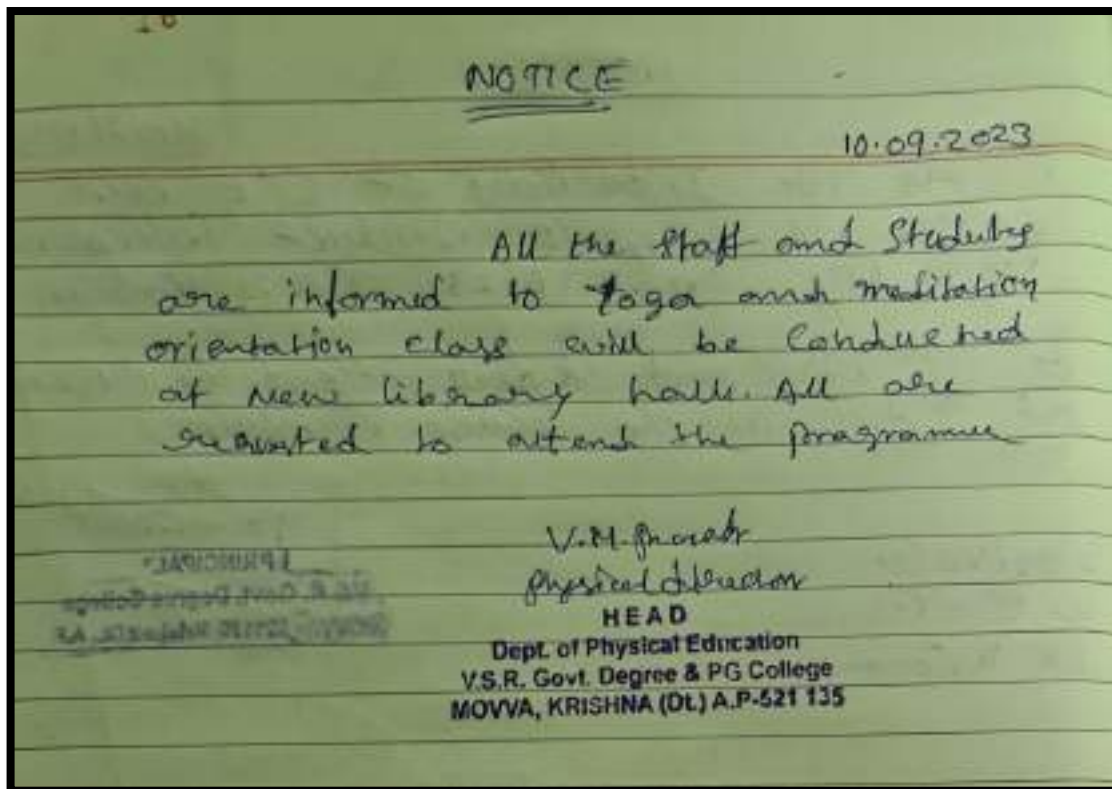 NOTICE
10.09.2023
All the Staff and Students
are informed to Yoga and meditation
orientation class will be Conducted
at New library hall. All are
requested to attend the programme
V.M.
Physical director
HEAD
Dept. of Physical Education
V.S.R. Govt. Degree & PG College
MOVVA, KRISHNA (Dt.) A.P-521 135